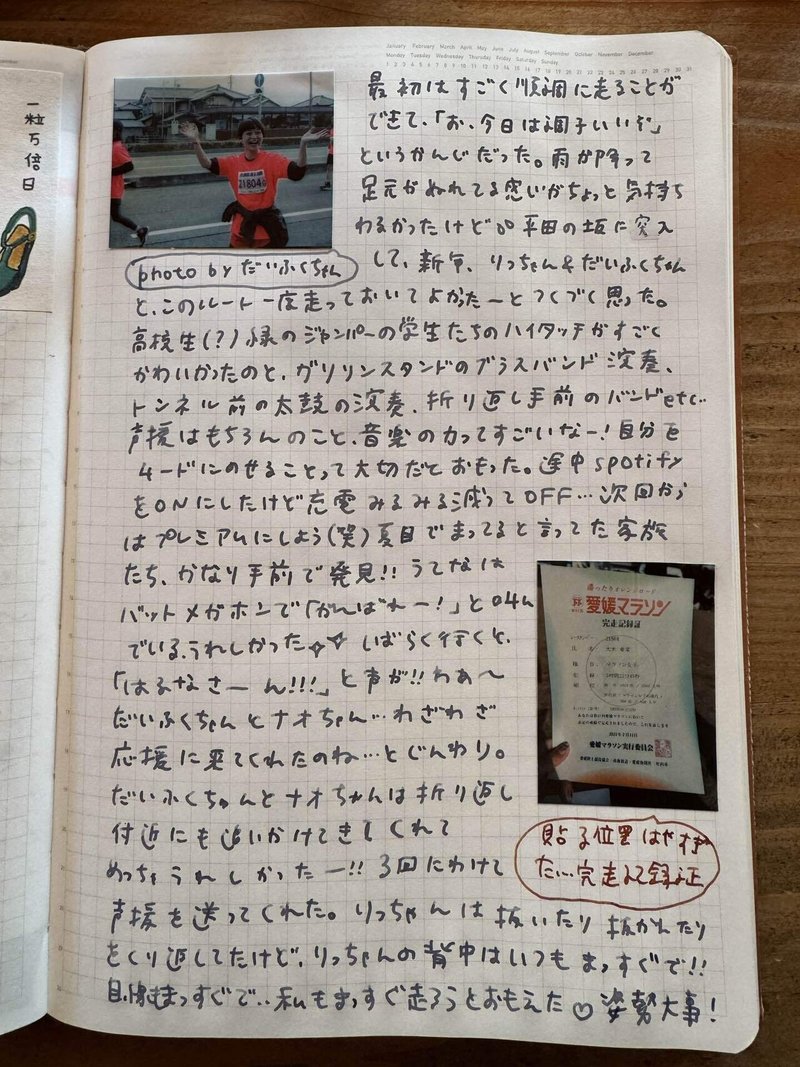 January February March April May June July August September October November December
Monday Tuesday Wednesday Thursday Friday Saturday Sunday
1 2 3 4 5 6 7 8 9 10 11 12 13 14 15 16 17 18 19 20 21 22 23 24 25 26 27 28 29 30 31
一粒万倍日
21804
最初はすごく順調に走ることが
できて、「お、今日は調子いいぞ」
というかんじだった。雨が降って
足元がぬれてる感じがちょっと気持ち
わるかったけど 平田の坂に突入
して、新年、りっちゃん&だいふくちゃん
photo by だいふくちゃん
と、このルート一度走っておいてよかったーとつくづく思った。
高校生(?)緑のジャンパーの学生たちのハイタッチがすごく
かわいかったのと、ガソリンスタンドのブラスバンド演奏、
トンネル前の太鼓の演奏、折り返し手前のバンドetc..
声援はもちろんのこと、音楽の力ってすごいなー!自分を
ムードにのせることって大切だとおもった。途中spotify
をONにしたけど充電みるみる減ってOFF…次回から
はプレミアムにしよう(笑)夏目でまってると言ってた家族
たち、かなり手前で発見!!うてなは
バットメガホンで「がんばれー!」と叫ん
でいる、うれしかった☆☆しばらく行くと、
「はるなさーん!!!」と声が!!わあ〜
だいふくちゃんとナオちゃん…わざわざ
応援に来てくれたのね…とじんわり。
だいふくちゃんとナオちゃんは折り返し
付近にも追いかけてきてくれて
めっちゃうれしかったー!!3回にわけて
声援を送ってくれた。りっちゃんは抜いたり抜かれたり
をくり返してたけど、りっちゃんの背中はいつもまっすぐで!!
目線もまっすぐで..私もまっすぐ走ろうとおもえた♡姿勢大事!
愛媛マラソン
完走記録証
愛媛マラソン実行委員会
貼る位置はやすぎ
た…完走記録証